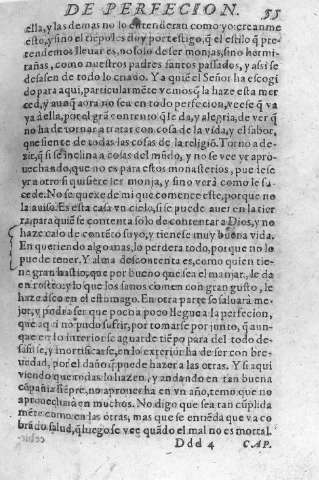 DE PERFECION. 55
ella, y las demas no lo entenderan como yo: creanme
esto, y sino el tiẽpo les doy por testigo, q̃ el estilo q̃ pre-
tendemos llevar es, no solo de ser monjas, sino hermi-
tañas, como nuestros padres santos passados, y assi se
desasen de todo lo criado. Y a quien el Señor ha escogi
do para aqui, particularmẽte vemos q̃ la haze esta mer
ced, y aunq̃ aora no sea en todo perfecion, veese q̃ va
ya a ella, por el grã contento q̃ le da, y alegria, de ver q̃
no ha de tornar a tratar con cosa de la vida, y el sabor,
que siente de todas las cosas de la religiõ. Torno a de-
zir, q̃ si se inclina a cosas del mũdo, y no se vee yr apro-
uechando, que no es para estos monasterios, puedese
yr a otro si quisiere ser monja, y sino verá como le su-
cede. No se quexe de mi que comence este, porque no
la auiso. Es esta casa vn cielo, si le puede auer en la tier
ra, para quiẽ se contenta solo de contentar a Dios, y no
haze caso de contẽto suyo, y tienese muy buena vida.
En queriendo algo mas, lo perdera todo, porque no lo
puede tener. Y alma descontenta es, como quien tie-
ne gran hastio, que por bueno que sea el manjar, le da
en rostro: y lo que los sanos comen con gran gusto, le
haze asco en el estomago. En otra parte se saluará me-
jor, y podra ser que poco a poco llegue a la perfecion,
que aqui no pudo sufrir, por tomarse por junto, q̃ aun-
que en lo interior se aguarde tiẽpo para del todo de-
sasirse, y mortificarse, en lo exterior ha de ser con bre-
uedad, por el daño q̃ puede hazer a las otras. Y si aqui
viendo que todas lo hazen, y andando en tan buena
cõpañia siẽpre, no aprouecha en vn año, temo que no
aprouechará en muchos. No digo que sea tan cũplida
mẽte como en las otras, mas que se entiẽda que va co
brãdo salud, q̃ luego se vee quãdo el mal no es mortal.
Ddd 4 CAP.